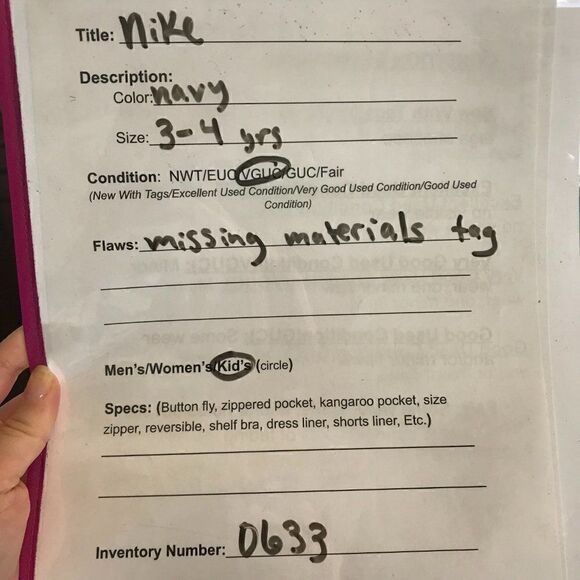 Title: Nike
Description:
Color: navy
Size: 3-4 yrs
Condition: NWT/EUC/VGUC/GUC/Fair
(New With Tags/Excellent Used Condition/Very Good Used Condition/Good Used
Condition)
Flaws: missing materials tag
Men's/Women's/Kid's (circle)
Specs: (Button fly, zippered pocket, kangaroo pocket, size
zipper, reversible, shelf bra, dress liner, shorts liner, Etc.)
Inventory Number: 0633